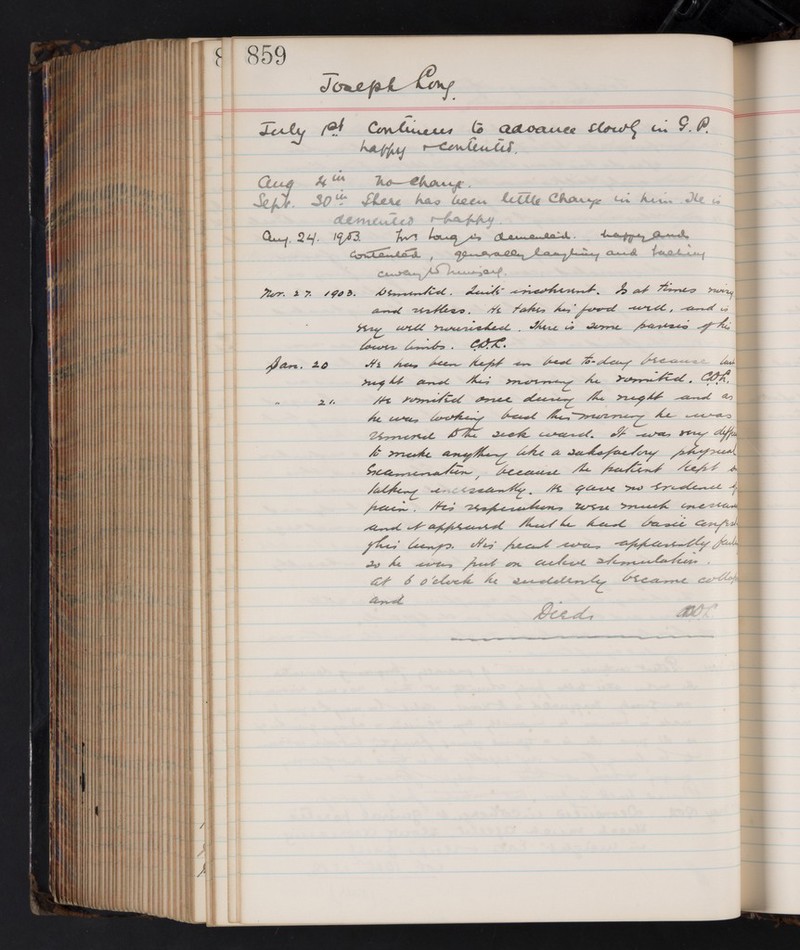 859
Joseph Long
July 1st Continues to advance slowly in G. P.
happy & contented.
Aug 4th No change.
Sept. 30th There has been little change in him. He is
demented & happy.
Aug. 24. 1903. is demented. happy and
contented, generally laughing and talking
away to himself.
Nov. 27. 1903. Demented. Quite incoherent. Is at times noisy
and restless. He takes his food well, and is
very well nourished. There is some paresis of his
lower limbs. C.D.L.
Jan. 20 He has been kept in bed to-day because last
night and this morning he vomited. C.D.L.
" 21. He vomited once during the night and as
he was looking bad this morning he was
removed to the sick ward. It was very
to make anything like a satisfactory physical
examination, because the patient kept
talking incessantly. He gave no evidence of
pain. His respirations were much
and it appeared that he had basic
of his lungs. His heart was apparently
so he was put on active stimulation.
At 6 o'clock he suddenly became
and
Died